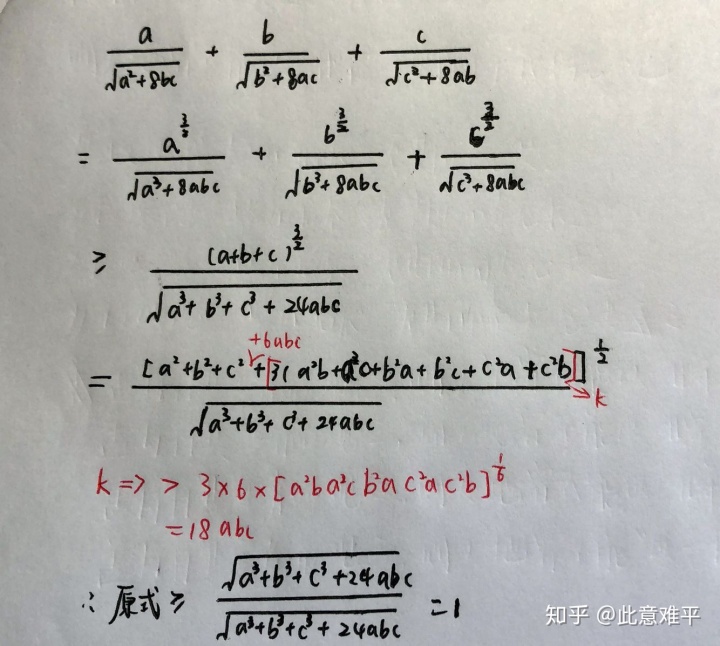 a/√(a²+8bc) + b/√(b²+8ac) + c/√(c²+8ab)
= a^(3/2)/√(a³+8abc) + b^(3/2)/√(b³+8abc) + c^(3/2)/√(c³+8abc)
≥ (a+b+c)^(3/2)/√(a³+b³+c³+24abc)
+6abc
= [a²+b²+c²+3(a²b+a²c+b²a+b²c+c²a+c²b)]^(1/2)/√(a³+b³+c³+24abc)
→ k
k => > 3×6×[a²b a²c b²a c²a c²b]^(1/6)
=18abc
∴ 原式 ≥ √(a³+b³+c³+24abc)/√(a³+b³+c³+24abc) =1
知乎 @此意难平